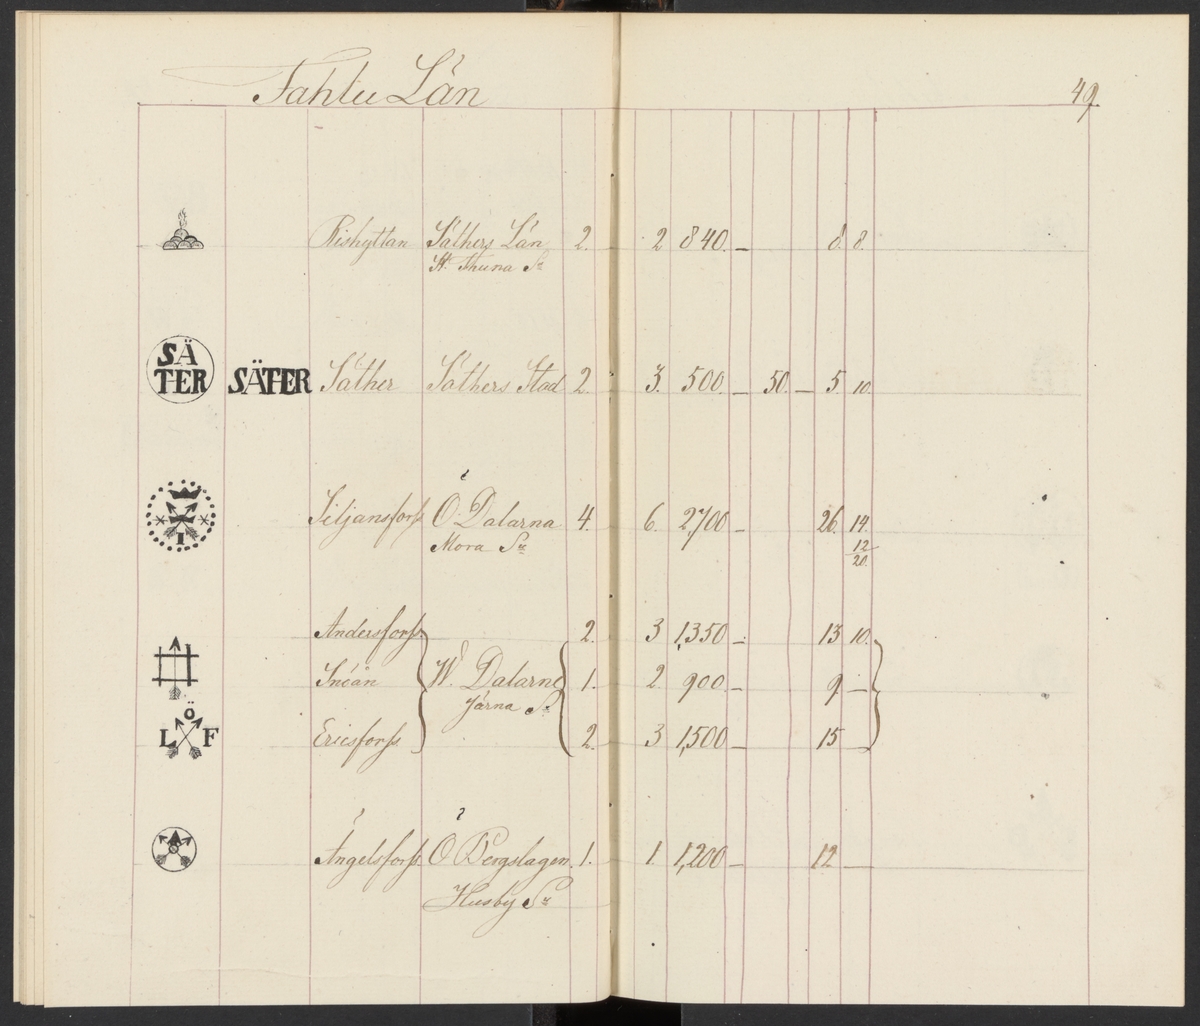 Fahlu Län
49.
Rishyttan Säthers Län 2. 2 840. — 8. 8.
St. Thuna Sn
SÄ
TER
SÄTER Säther Säthers Stad 2. 3. 500. — 50. — 5. 10.
Siljansforss Ö. Dalarna 4. 6. 2,700 — 26. 14.
Mora Sn 12
20.
I
Andersforss 2. 3 1,350 — 13 10.
Snöån W. Dalarne 1. 2. 900 — 9 —
Järna Sn
Ö
L F Ericsforss 2. 3 1,500 — 15
Ängelsforss Ö Bergslagen 1. 1. 1,200 — 12 —
Husby Sn